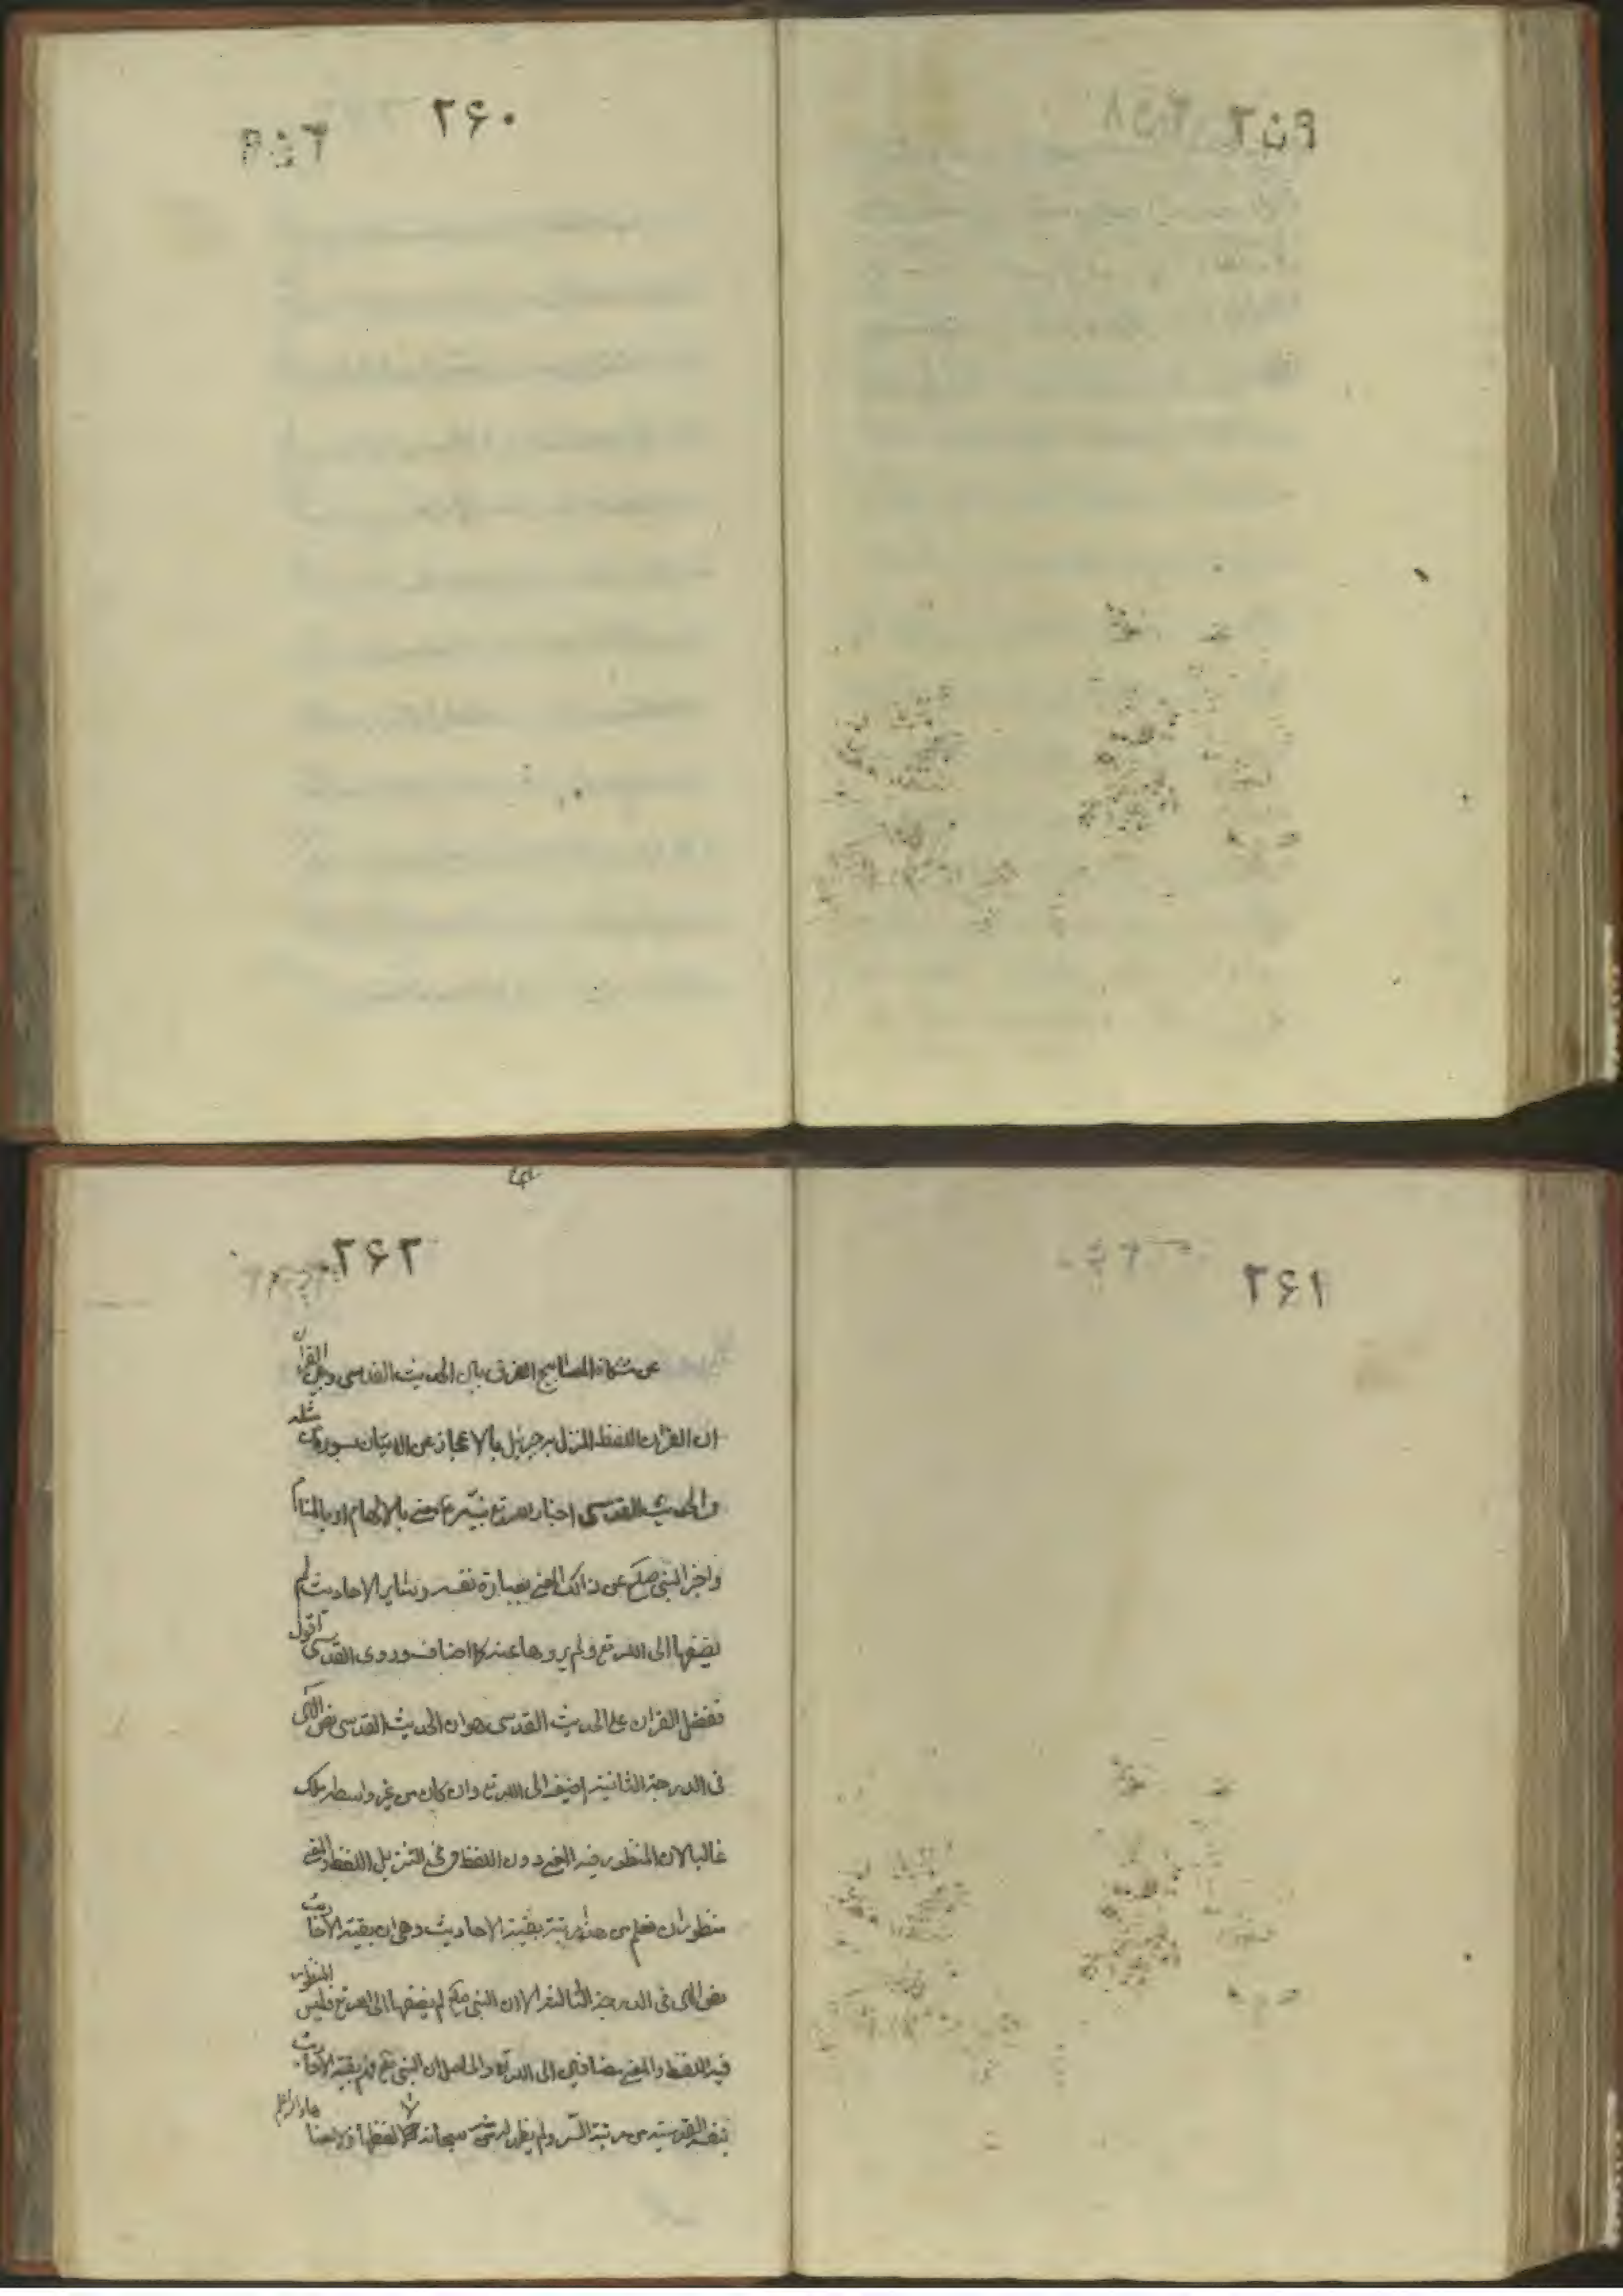 ۲۵۹
۲۶۰
۲۶۱
۲۶۲
عن مشكاة المصابيح الفرق بين الحديث القدسى وبين القرآن
ان القران اللفظ المنزل به جبرئيل بالاعجاز عن الاتيان بسورة من مثله
والحديث القدسى اخبار الله تع نبيّه ع معنى بالالهام او بالمنام
واخبر النبى صلعم عن ذالك المعنى بعبارة نفسه وساير الاحاديث لم
يضفها الى الله تع ولم يروها عنه كما اضاف وروى القدسى اقول
ففضل القران على الحديث القدسى هو ان الحديث القدسى نص الٓهى
فى الدرجة الثانية اضيف الى الله تع وان كان من غير واسطه ملك
غالبا لان المنظور فيه المعنى دون اللفظ وفى التنزيل اللفظ والمعنى
منظوران فعلم من هذا مرتبة بقية الاحاديث وهى ان بقية الاحاديث
نص الٓهى فى الدرجة الثالثة الا ان النبى صلعم لم يضفها الى الله تع فليس المنظور
فيه اللفظ والمعنى مضافين الى الله تع والحاصل ان النبى بقية الاحاديث
بنفسه القدسية من مرتبة السّر ولم سبحانه لا لفظها ولا معناها والله اعلم